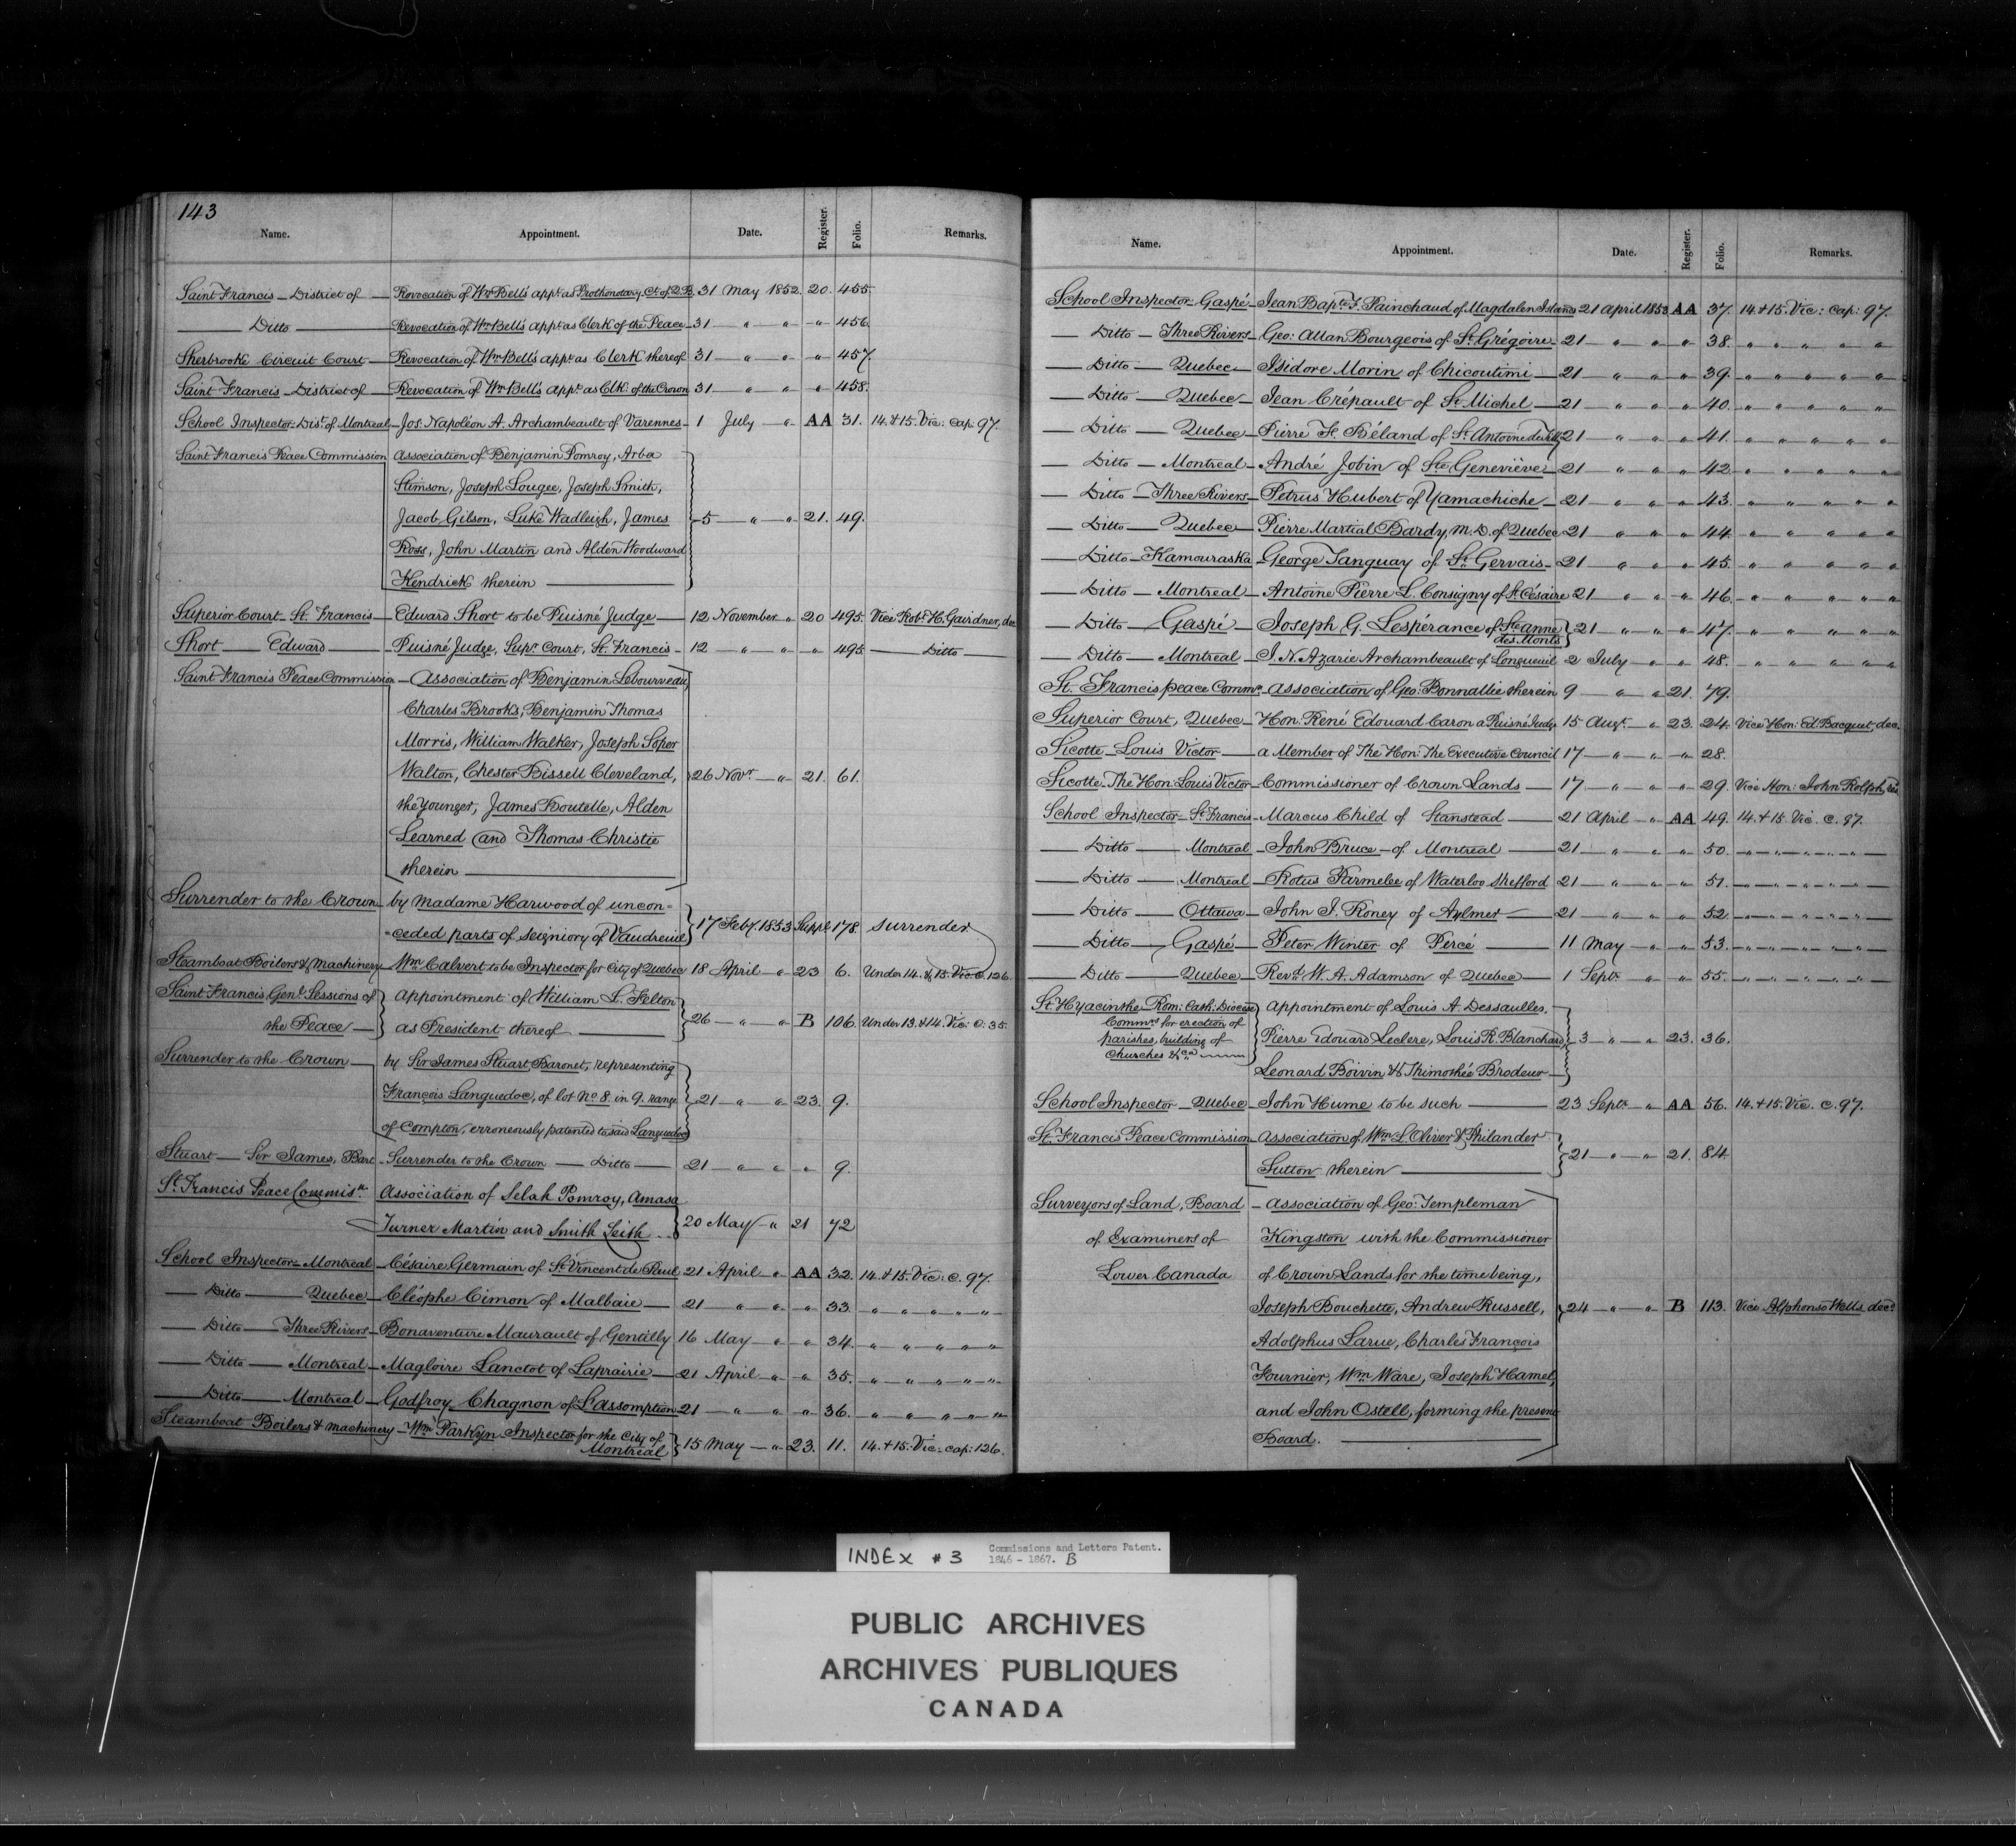 143
Name. Appointment. Date. Register. Folio. Remarks.
Saint Francis — District of — Revocation of Wm Bell's appt. as Prothonotary Ct. of Q.B. 31 May 1852. 20. 455.
Ditto — Revocation of Wm Bell's appt. as Clerk of the Peace — 31 — " — " — " — 456.
Sherbrooke Circuit Court — Revocation of Wm Bell's appt. as Clerk thereof 31 — " — " — " — 457.
Saint Francis — District of — Revocation of Wm Bell's appt. as Clk. of the Crown 31 — " — " — " — 458.
School Inspector — Dist. of Montreal — Jos. Napoléon A. Archambeault of Varennes — 1 July — " — AA 31. 14. & 15. Vic: Cap: 97.
Saint Francis Peace Commission Association of Benjamin Pomroy, Arba
Stimson, Joseph Lougee, Joseph Smith,
Jacob Gilson, Luke Wadleigh, James } 5 — " — " 21. 49.
Ross, John Martin and Alden Woodward
Kendrick therein —
Superior Court — St. Francis — Edward Short to be Puisné Judge — 12 November " 20 495. Vice Robt. H. Gairdner, dec
Short — Edward — Puisné Judge, Supr. Court, St. Francis — 12 — " — " — " — 495 — Ditto —
Saint Francis Peace Commission — Association of Benjamin Lebourveau,
Charles Brooks, Benjamin Thomas
Morris, William Walker, Joseph Soper
Walton, Chester Bissell Cleveland, } 26 Novr. — " — 21. 61.
the Younger, James Boutelle, Alden
Learned and Thomas Christie
therein —
Surrender to the Crown — by Madame Harwood of uncon-
-ceded parts of seigniory of Vaudreuil } 17 Feby. 1853 Suppl 178. Surrender
Steamboat Boilers & Machinery — Wm. Calvert to be Inspector for City of Quebec 18 April — " — 23 6. Under 14. & 15. Vic. C. 126.
Saint Francis Genl. Sessions of } Appointment of William L. Felton
the Peace — as President thereof — } 26 — " — " B 106. Under 13. & 14. Vic: C: 35.
Surrender to the Crown — by Sir James Stuart, Baronet, representing
François Languedoc, of lot No 8. in 9. range } 21 — " — " 23. 9.
of Compton, erroneously patented to said Languedoc
Stuart — Sir James, Bart — Surrender to the Crown — Ditto — 21 — " — " " 9.
St. Francis Peace Commisn. Association of Selah Pomroy, Amasa
Turner Martin and Smith Leith } 20 May — " 21 72
School Inspector — Montreal — Césaire Germain of St. Vincent de Paul 21 April — " AA 32. 14. & 15. Vic: C. 97.
Ditto — Quebec — Cléophe Cimon of Malbaie — 21 — " — " — " 33. " " " " "
Ditto — Three Rivers — Bonaventure Maurault of Gentilly 16 May — " — " 34. " " " " "
Ditto — Montreal — Magloire Lanctot of Laprairie — 21 April — " — " 35. " " " " "
Ditto — Montreal — Godfroy Chagnon of L'Assomption 21 — " — " " 36. " " " " "
Steamboat Boilers & Machinery — Wm. Parkyn Inspector for the City of
Montreal } 15 May — " 23. 11. 14. & 15. Vic. Cap: 126.
Name. Appointment. Date. Register. Folio. Remarks.
School Inspector — Gaspé — Jean Bapte. F. Painchaud of Magdalen Islands 21 April 1853 AA 37. 14. & 15. Vic: Cap: 97.
Ditto — Three Rivers — Geo: Allan Bourgeois of St. Grégoire — 21 — " " " 38. " " " " "
Ditto — Quebec — Isidore Morin of Chicoutimi — 21 — " " " 39. " " " " "
Ditto — Quebec — Jean Crépault of St. Michel — 21 — " " " 40. " " " " "
Ditto — Quebec — Pierre F. Béland of St. Antoine de Tilly 21 — " " " 41. " " " " "
Ditto — Montreal — André Jobin of Ste. Geneviève — 21 — " " " 42. " " " " "
Ditto — Three Rivers — Petrus Hubert of Yamachiche — 21 — " " " 43. " " " " "
Ditto — Quebec — Pierre Martial Bardy, M.D. of Quebec 21 — " " " 44. " " " " "
Ditto — Kamouraska — George Tanguay of St. Gervais — 21 — " " " 45. " " " " "
Ditto — Montreal — Antoine Pierre L. Consigny of St. Césaire 21 — " " " 46. " " " " "
Ditto — Gaspé — Joseph G. Lespérance of Ste Anne
des Monts } 21 — " " " 47. " " " " "
Ditto — Montreal — J. N. Azarie Archambeault of Longueuil 2 July — " — " 48. " " " " "
St. Francis peace Commn. — Association of Geo: Bonnallie therein 9 — " — " 21. 79.
Superior Court, Quebec — Hon: René Edouard Caron a Puisné Judge 15 Augt. — " 23. 24. Vice Hon: Ed. Bacquet, dec.
Sicotte — Louis Victor — a Member of The Hon: The Executive Council 17 — " — " — " 28.
Sicotte — The Hon: Louis Victor — Commissioner of Crown Lands — 17 — " — " — " 29. Vice Hon: John Rolph, res
School Inspector — St. Francis — Marcus Child of Stanstead — 21 April — " — AA 49. 14. & 15. Vic. C. 97.
Ditto — Montreal — John Bruce — of Montreal — 21 — " — " — " 50. " " " " "
Ditto — Montreal — Rotus Parmelee of Waterloo Shefford 21 — " — " — " 51. " " " " "
Ditto — Ottawa — John J. Roney of Aylmer — 21 — " — " — " 52. " " " " "
Ditto — Gaspé — Peter Winter of Percé — 11 May — " — " 53. " " " " "
Ditto — Quebec — Revd. W. A. Adamson of Quebec — 1 Septr. — " — " 55. " " " " "
St. Hyacinthe — Rom: Cath: Diocese Appointment of Louis A. Dessaulles,
Commrs. for erection of
parishes, building of Pierre Edouard Leclere, Louis R. Blanchard, } 3 — " — " 23. 36.
churches &ca. Leonard Boivin & Thimothée Brodeur —
School Inspector — Quebec — John Hume to be such — 23 Septr. — " AA 56. 14. & 15. Vic. C. 97.
St. Francis Peace Commission — Association of Wm. L. Oliver & Philander
Sutton therein — } 21 — " — " 21. 84.
Surveyors of Land, Board — Association of Geo: Templeman
of Examiners of Kingston with the Commissioner
Lower Canada of Crown Lands for the time being,
Joseph Bouchette, Andrew Russell, } 24 — " — " B 113. Vice Alphonso Wells, decd.
Adolphus Larue, Charles François
Fournier, Wm. Ware, Joseph Hamel,
and John Ostell, forming the present
Board.
INDEX # 3 Commissions and Letters Patent.
1846 - 1867. B
PUBLIC ARCHIVES
ARCHIVES PUBLIQUES
CANADA